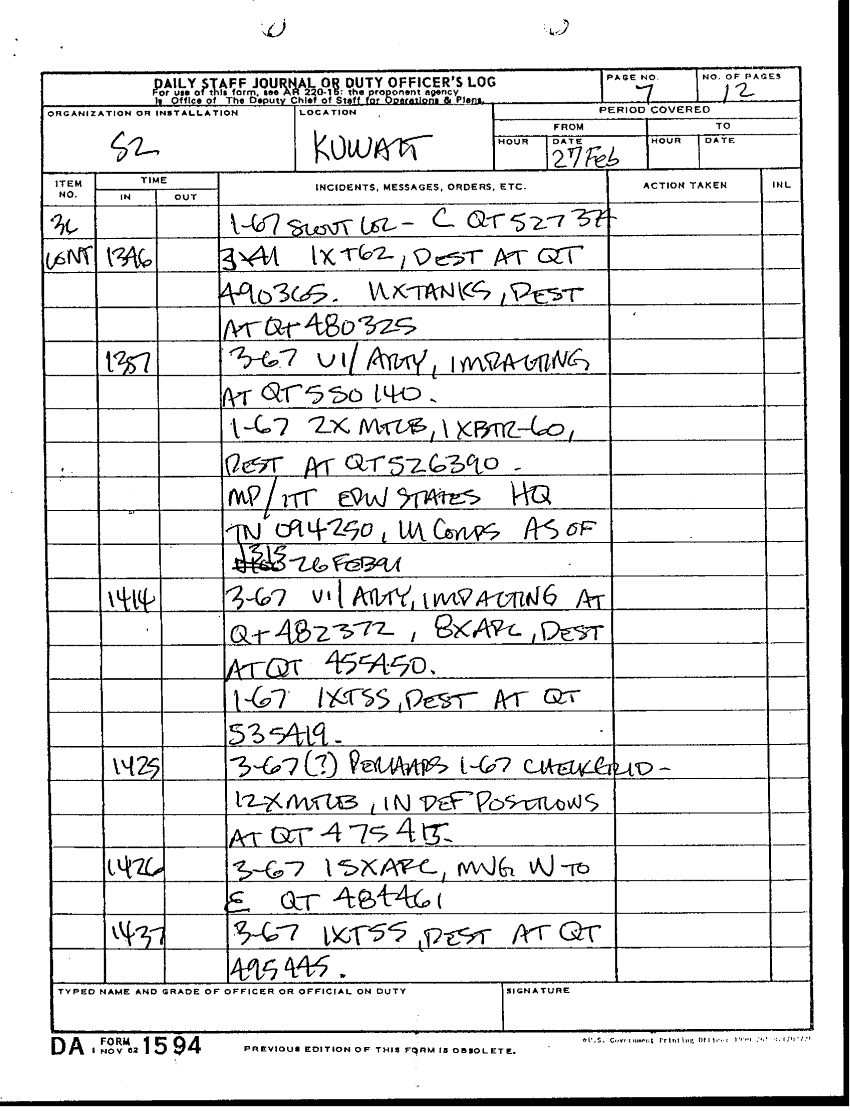 DAILY STAFF JOURNAL OR DUTY OFFICER'S LOG
For use of this form, see AR 220-15; the proponent agency
is Office of The Deputy Chief of Staff for Operations & Plans.
PAGE NO.
7
NO. OF PAGES
12
ORGANIZATION OR INSTALLATION
S2
LOCATION
KUWAIT
PERIOD COVERED
FROM
TO
HOUR
DATE
27 Feb
HOUR
DATE
ITEM NO.
TIME
IN
OUT
INCIDENTS, MESSAGES, ORDERS, ETC.
ACTION TAKEN
INL
1-67 SCOUT LOC - C QT 52737
CONT 1346 1XT62, DEST AT QT
490365. TANKS, DEST
AT QT 480325
1357 3-67 VI/ ARTY, IMPACTING
AT QT 550140.
1-67 2X MTLB, 1XBTR-60,
DEST AT QT526390 -
MP/ITT EPW STATES HQ
TN 094250, III CORPS AS OF
1315 26FEB91
1414 3-67 VI/ ARTY, IMPACTING AT
QT 482372, 8XAPC, DEST
AT QT 455450.
1-67 1XT55, DEST AT QT
535419.
1425 3-67(?) PERHAPS 1-67 CHECK GRID -
12XMTLB, IN DEF POSITIONS
AT QT 475415.
1426 3-67 15XAPC, MVG W TO
E QT 484461
1437 3-67 1XT55, DEST AT QT
495445.
TYPED NAME AND GRADE OF OFFICER OR OFFICIAL ON DUTY
SIGNATURE
DA FORM 1 NOV 62 1594
PREVIOUS EDITION OF THIS FORM IS OBSOLETE.
U.S. Government Printing Office: